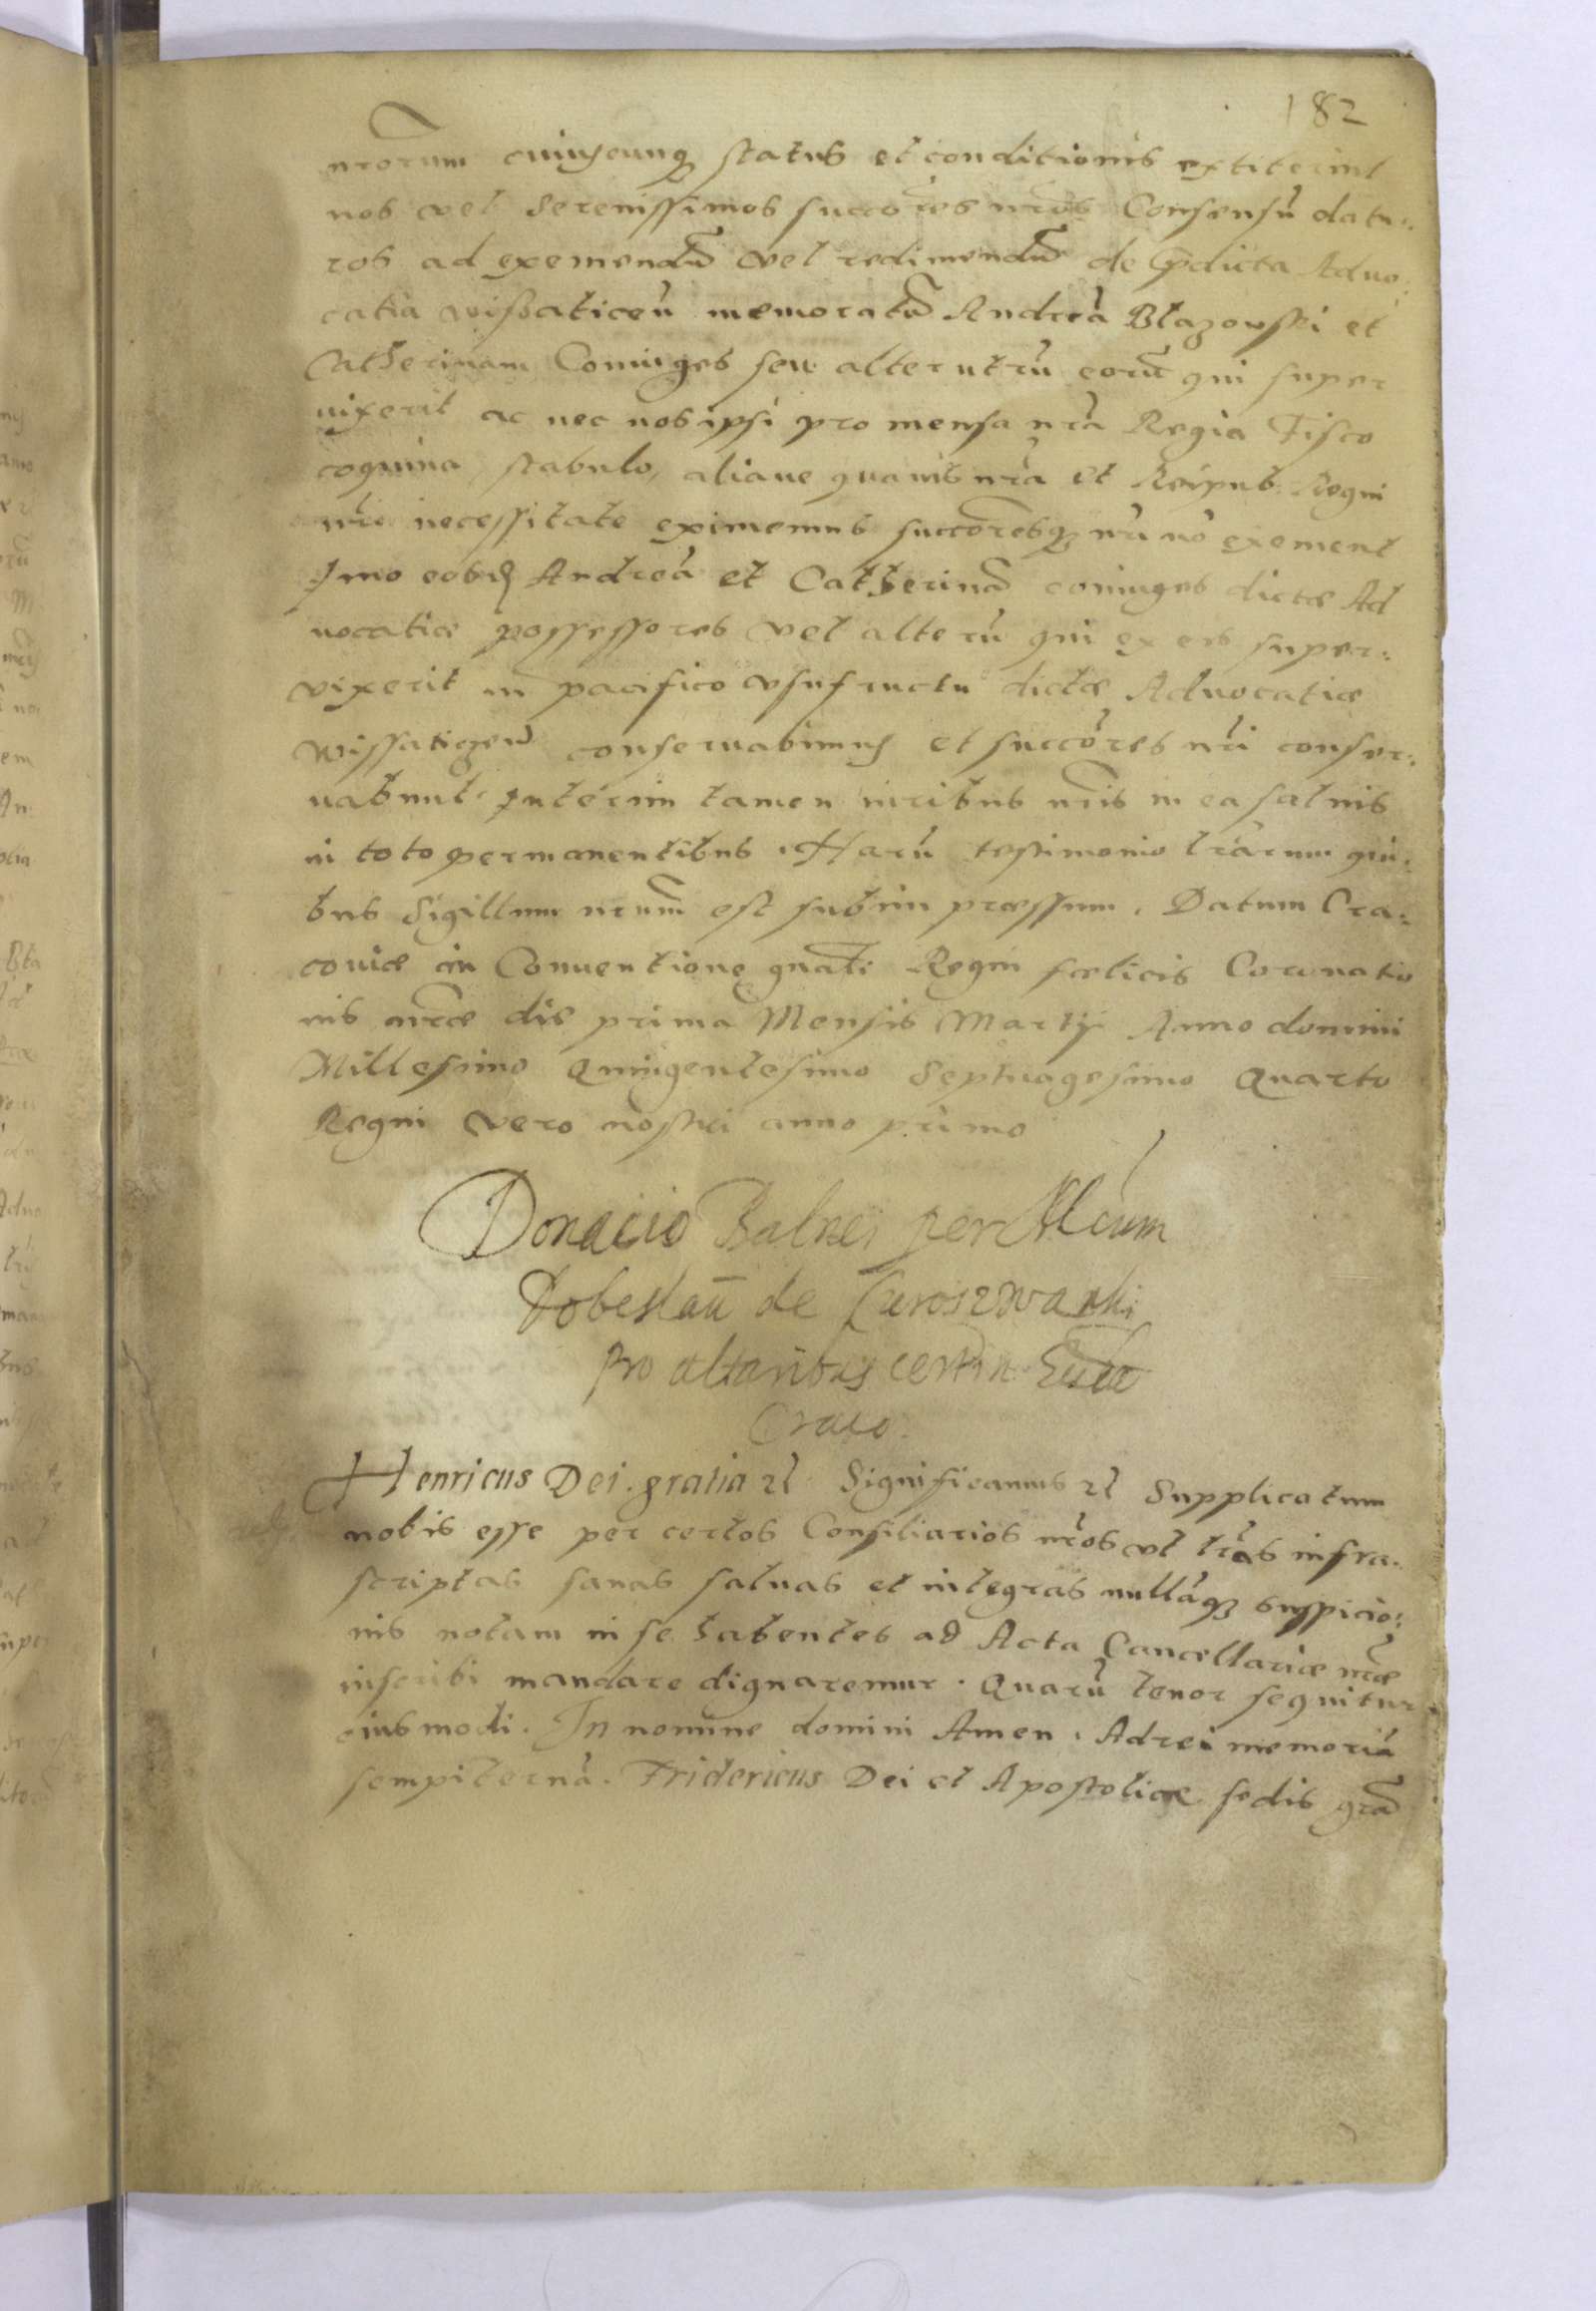 182
nrorum cuiuscunq status et conditionis extiterint
nos vel Serenissimos succores nros Consensū datu:
ros ad exemendū vel redimendū de pdicta Aduo:
catia Wissaticeñ memoratū Andreā Blazowski et
Catherinam Coniuges seu alterutrū eorū qui super
uixerit ac nec nos ipsi pro mensa nrā Regia Fisco
coquina stabulo, aliaue quauis nrā et Reipub. Regni
nri necessitate eximemus succoresq nri nō exement
Imo eosdē Andreā et Catherinā coniuges dictæ Ad
uocatiæ possessores vel alterū qui ex eis super:
vixerit in pacifico vsufructu dictæ Aduocatiæ
Wissaticzeñ conseruabimus et succōres nri conser:
uabunt. Interim tamen iuribus nris in ea saluis
in toto permanentibus. Harū testimonio lrārum qui:
bus Sigillum nrum est subim pressum. Datum Cra:
couiæ in Conuentione gnāli Regni fœlicis Coronatio
nis nræ die prima Mensis Martij Anno domini
Millesimo Quingentesimo Septuagesimo Quarto
Regni vero nostri anno primo
Donacio Balnei per
Dobeslaū de Curoszwanki
pro altaribus certis in Eccla
Craco.
Henricus Dei gratia etc Significamus etc Supplicatum
nobis esse per certos Consiliarios nros vt lrās infra.
scriptas sanas saluas et integras nullāq suspicio:
nis notam in se habentes ad Acta Cancellariæ nræ
inscribi mandare dignaremur. Quarū tenor sequitur
eiusmodi. In nomine domini Amen. Ad rei memoriā
sempiternā. Fridericus Dei et Apostolicæ sedis grā